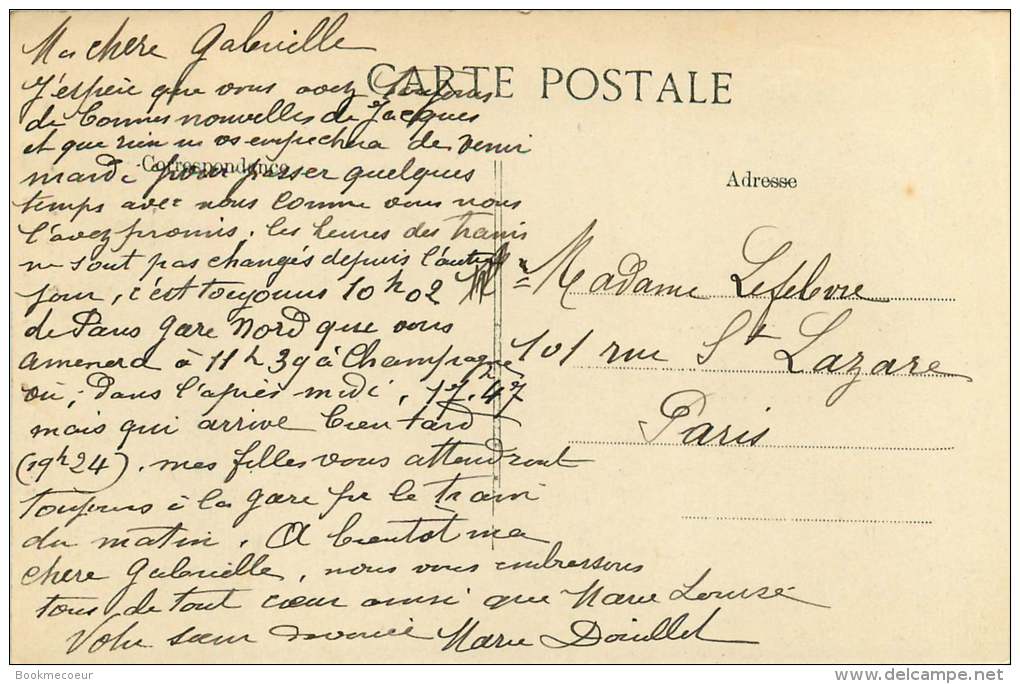 Ma chere Gabrielle
CARTE POSTALE
J'espère que vous avez toujours
de bonnes nouvelles de Jacques
et que rien ne vs empechera de venir
Correspondance
mardi pour passer quelques
temps avec nous comme vous nous
l'avez promis, les heures des trains
ne sont pas changés depuis l'autre
jour, c'est toujours 10h02 M
de Paris gare Nord que vous
amenera à 11h39 à Champagne
ou, dans l'après midi, 17h47
mais qui arrive bien tard
(19h24). mes filles vous attendront
toujours à la gare pr le train
du matin. A bientot ma
chere Gabrielle, nous vous embrassons
tous de tout cœur ainsi que Marie Louise
Votre sœur Marie Douillet
Adresse
Madame Lefebvre
101 rue St Lazare
Paris
Bookmecoeur
www.delcampe.net